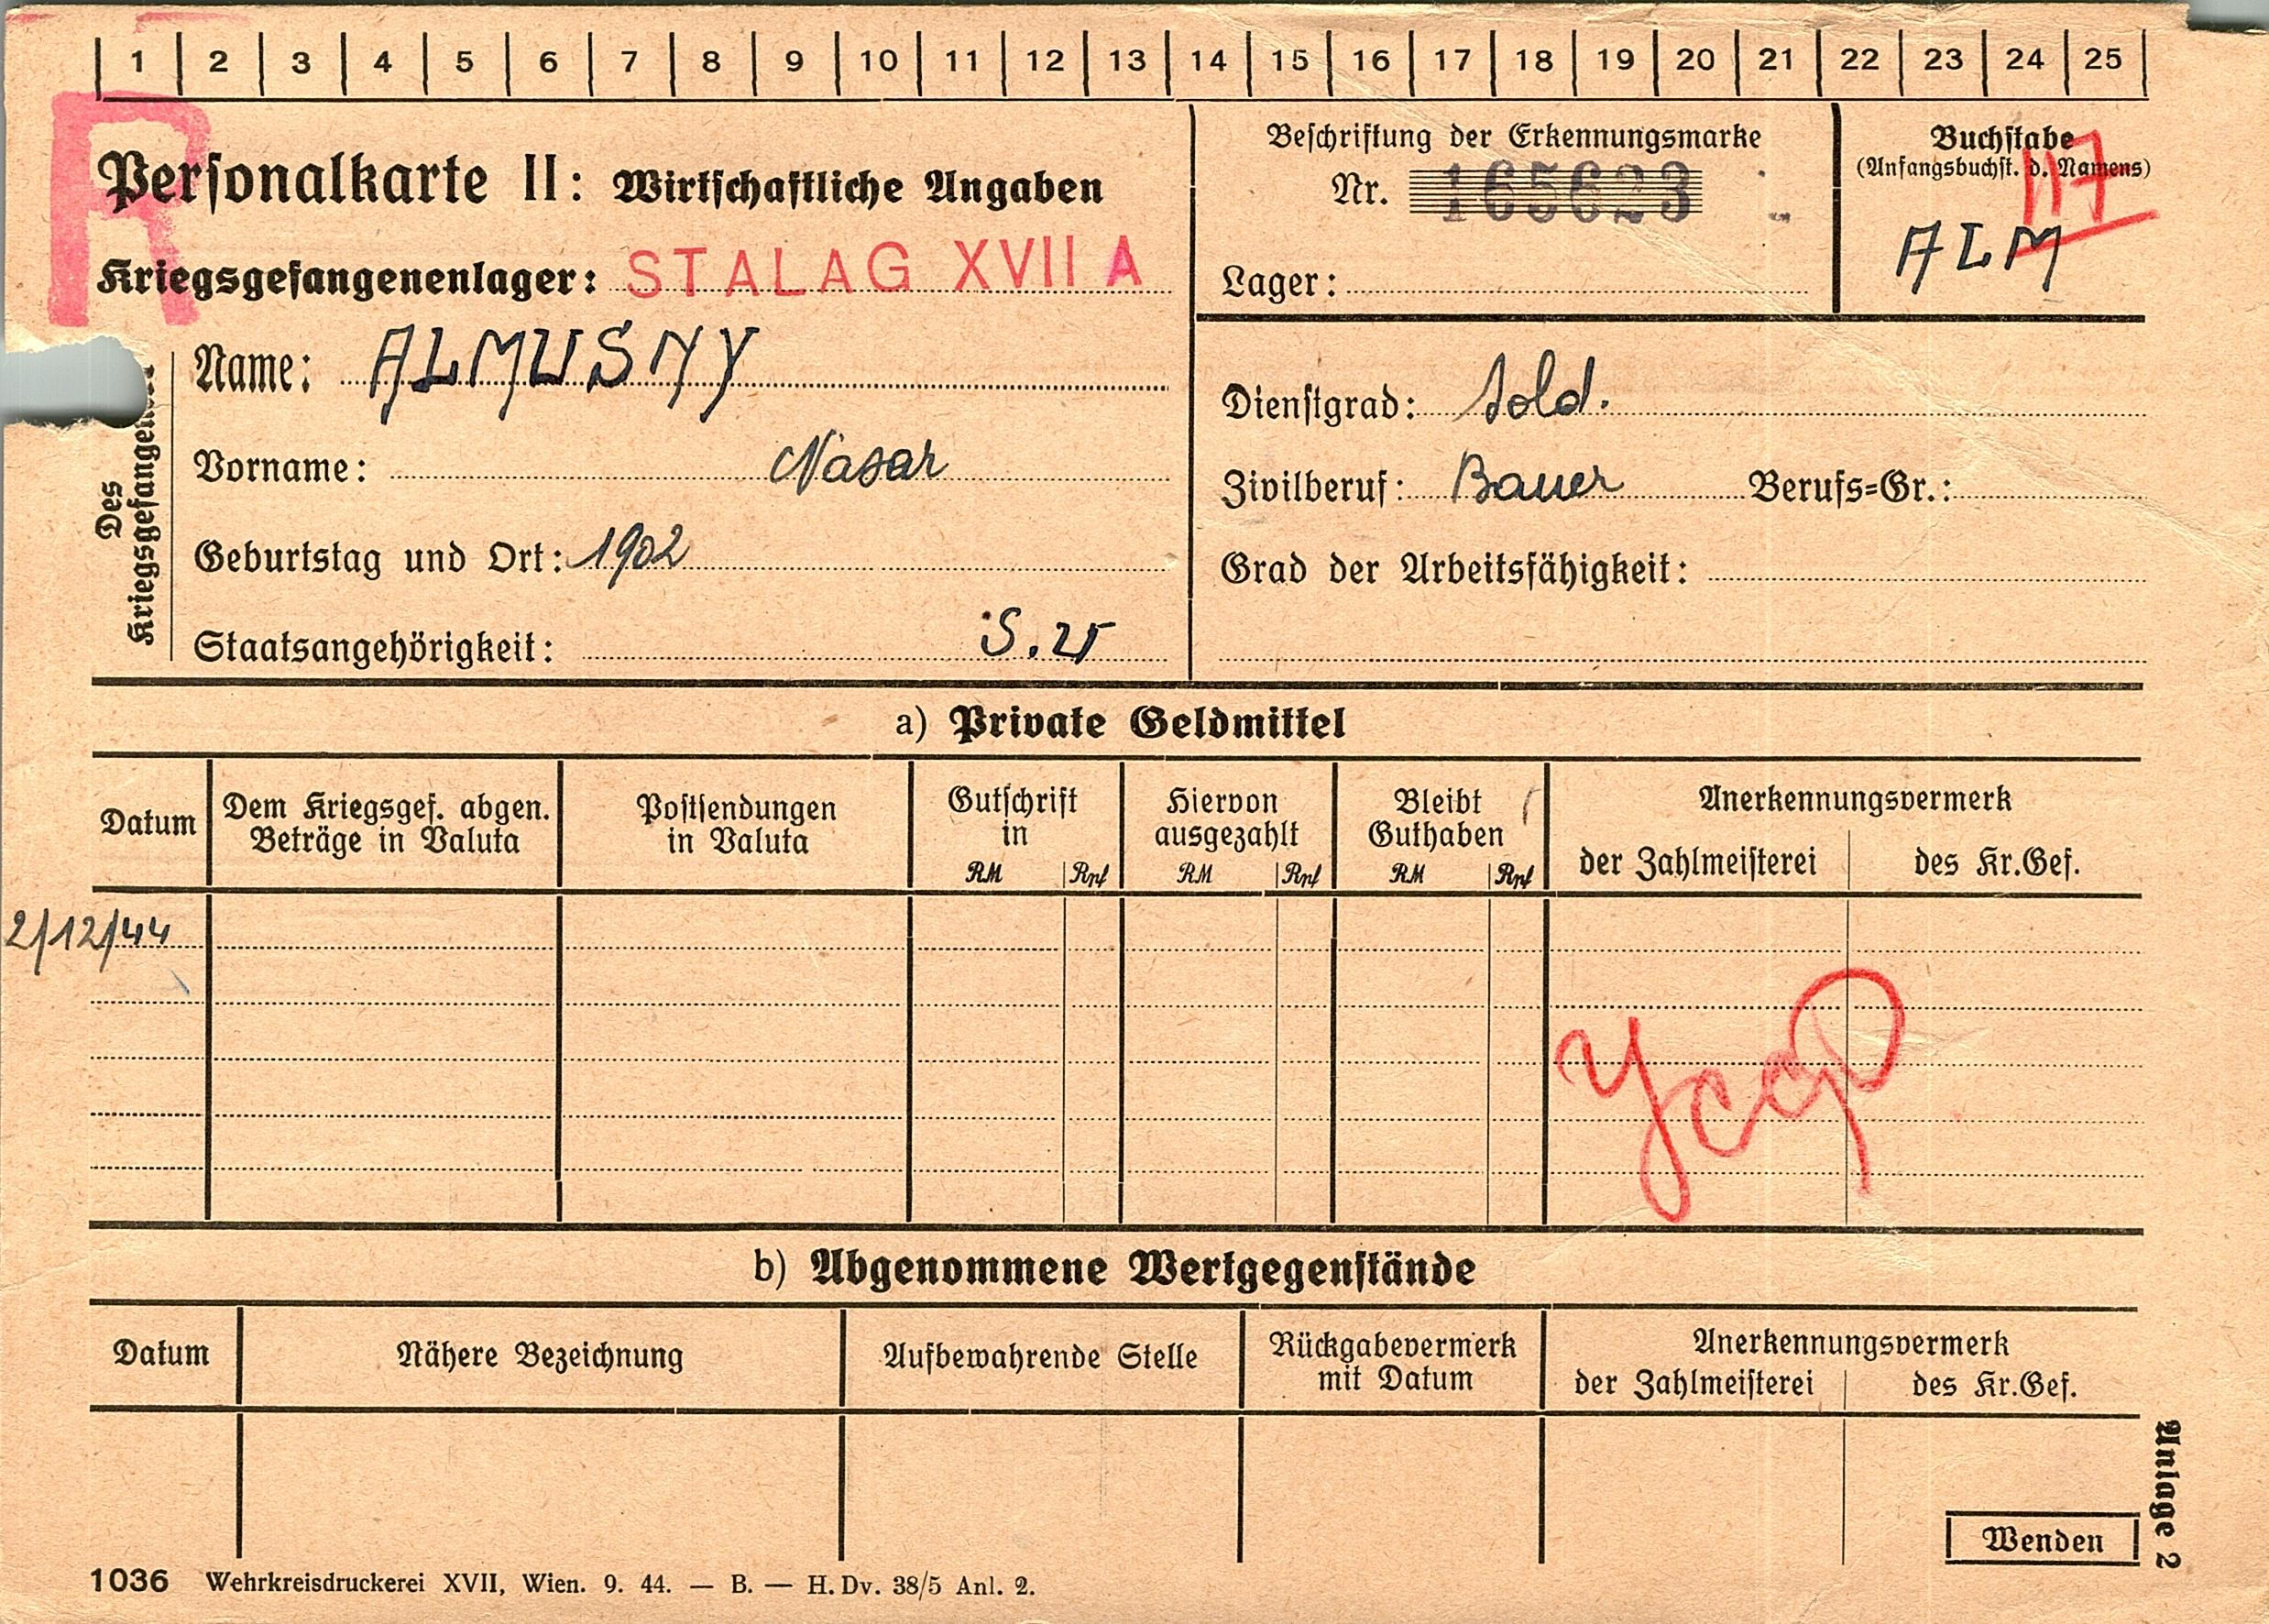 1 2 3 4 5 6 7 8 9 10 11 12 13 14 15 16 17 18 19 20 21 22 23 24 25
R
Personalkarte II: Wirtschaftliche Angaben
Kriegsgefangenenlager: STALAG XVII A
Beschriftung der Erkennungsmarke
Nr. 165623
Lager:
Buchstabe
(Anfangsbuchst. d. Namens)
117
ALM
Des
Kriegsgefangenen
Name: ALMUSNY
Vorname: Nasar
Geburtstag und Ort: 1902
Staatsangehörigkeit: S.
Dienstgrad: Sold.
Zivilberuf: Bauer Berufs=Gr.:
Grad der Arbeitsfähigkeit:
a) Private Geldmittel
Datum
Dem Kriegsgef. abgen.
Beträge in Valuta
Postsendungen
in Valuta
Gutschrift
in
RM Rpf
Hiervon
ausgezahlt
RM Rpf
Bleibt
Guthaben
RM Rpf
Anerkennungsvermerk
der Zahlmeisterei des Kr.Gef.
2/12/44
b) Abgenommene Wertgegenstände
Datum
Nähere Bezeichnung
Aufbewahrende Stelle
Rückgabevermerk
mit Datum
Anerkennungsvermerk
der Zahlmeisterei des Kr.Gef.
Wenden
Anlage 2
1036 Wehrkreisdruckerei XVII, Wien. 9. 44. — B. — H. Dv. 38/5 Anl. 2.